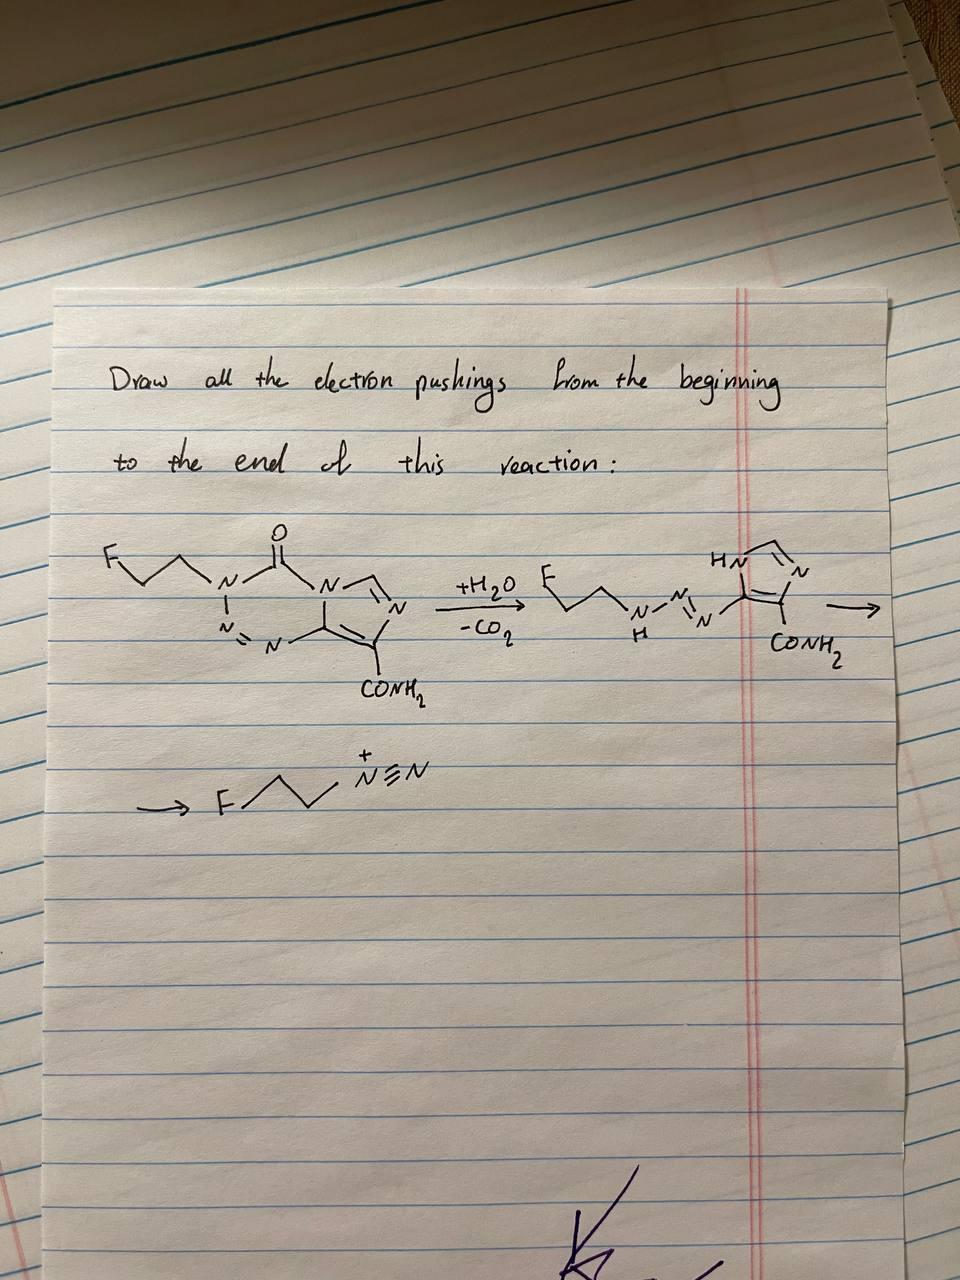 Draw all the electron pushings from the beginning
to the end of this reaction:
F N O N N N N CONH₂ +H₂O -CO₂ F N H N N HN N CONH₂
F N⁺≡N